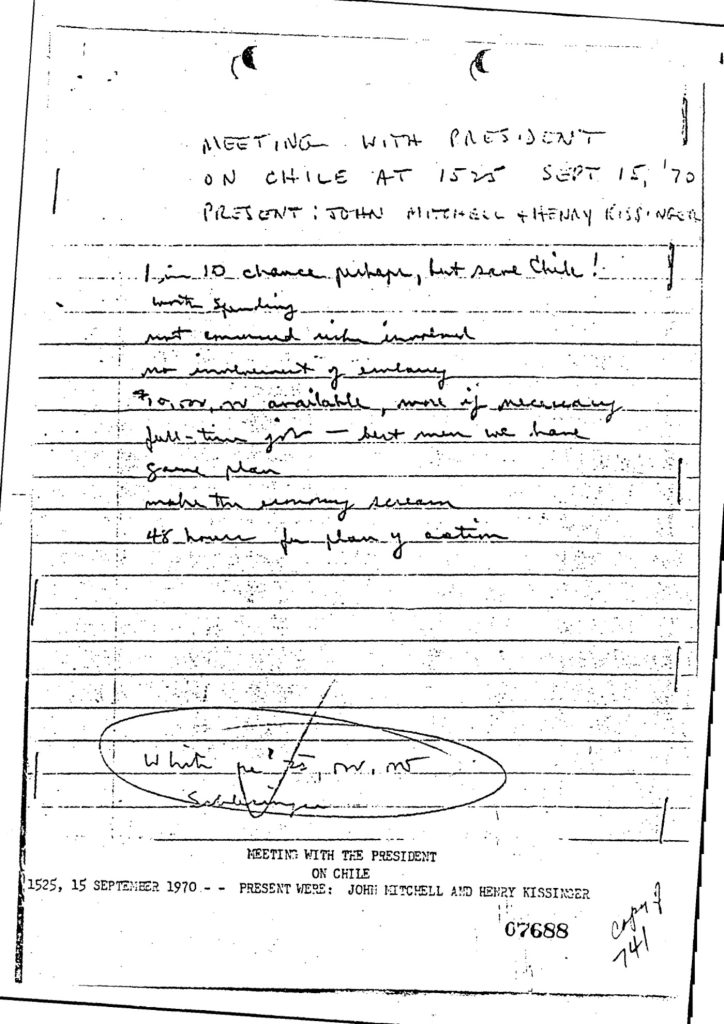 MEETING WITH PRESIDENT
ON CHILE AT 1525 SEPT 15, '70
PRESENT: JOHN MITCHELL + HENRY KISSINGER
1 in 10 chance perhaps, but save Chile!
worth spending
not concerned risks involved
no involvement of embassy
$10,000,000 available, more if necessary
full-time job — best men we have
game plan
make the economy scream
48 hours for plan of action
White
MEETING WITH THE PRESIDENT
ON CHILE
1525, 15 SEPTEMBER 1970 -- PRESENT WERE: JOHN MITCHELL AND HENRY KISSINGER
07688
copy of
741